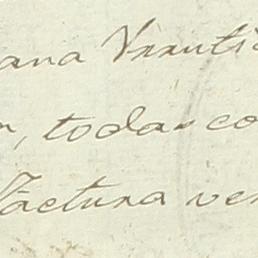 ana Vrruti
n, todas co
Factura ver